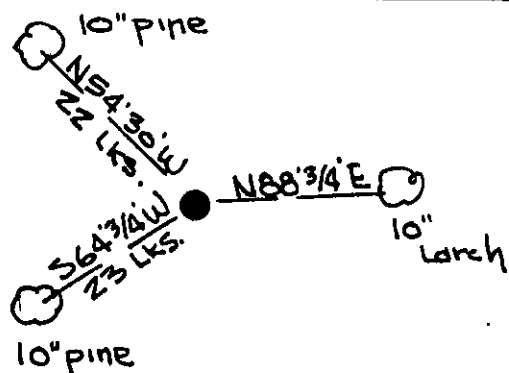 10" pine
N54'30'W
22 LKS.
N88'3/4'E
10"
Larch
S64'3/4'W
23 LKS.
10" pine